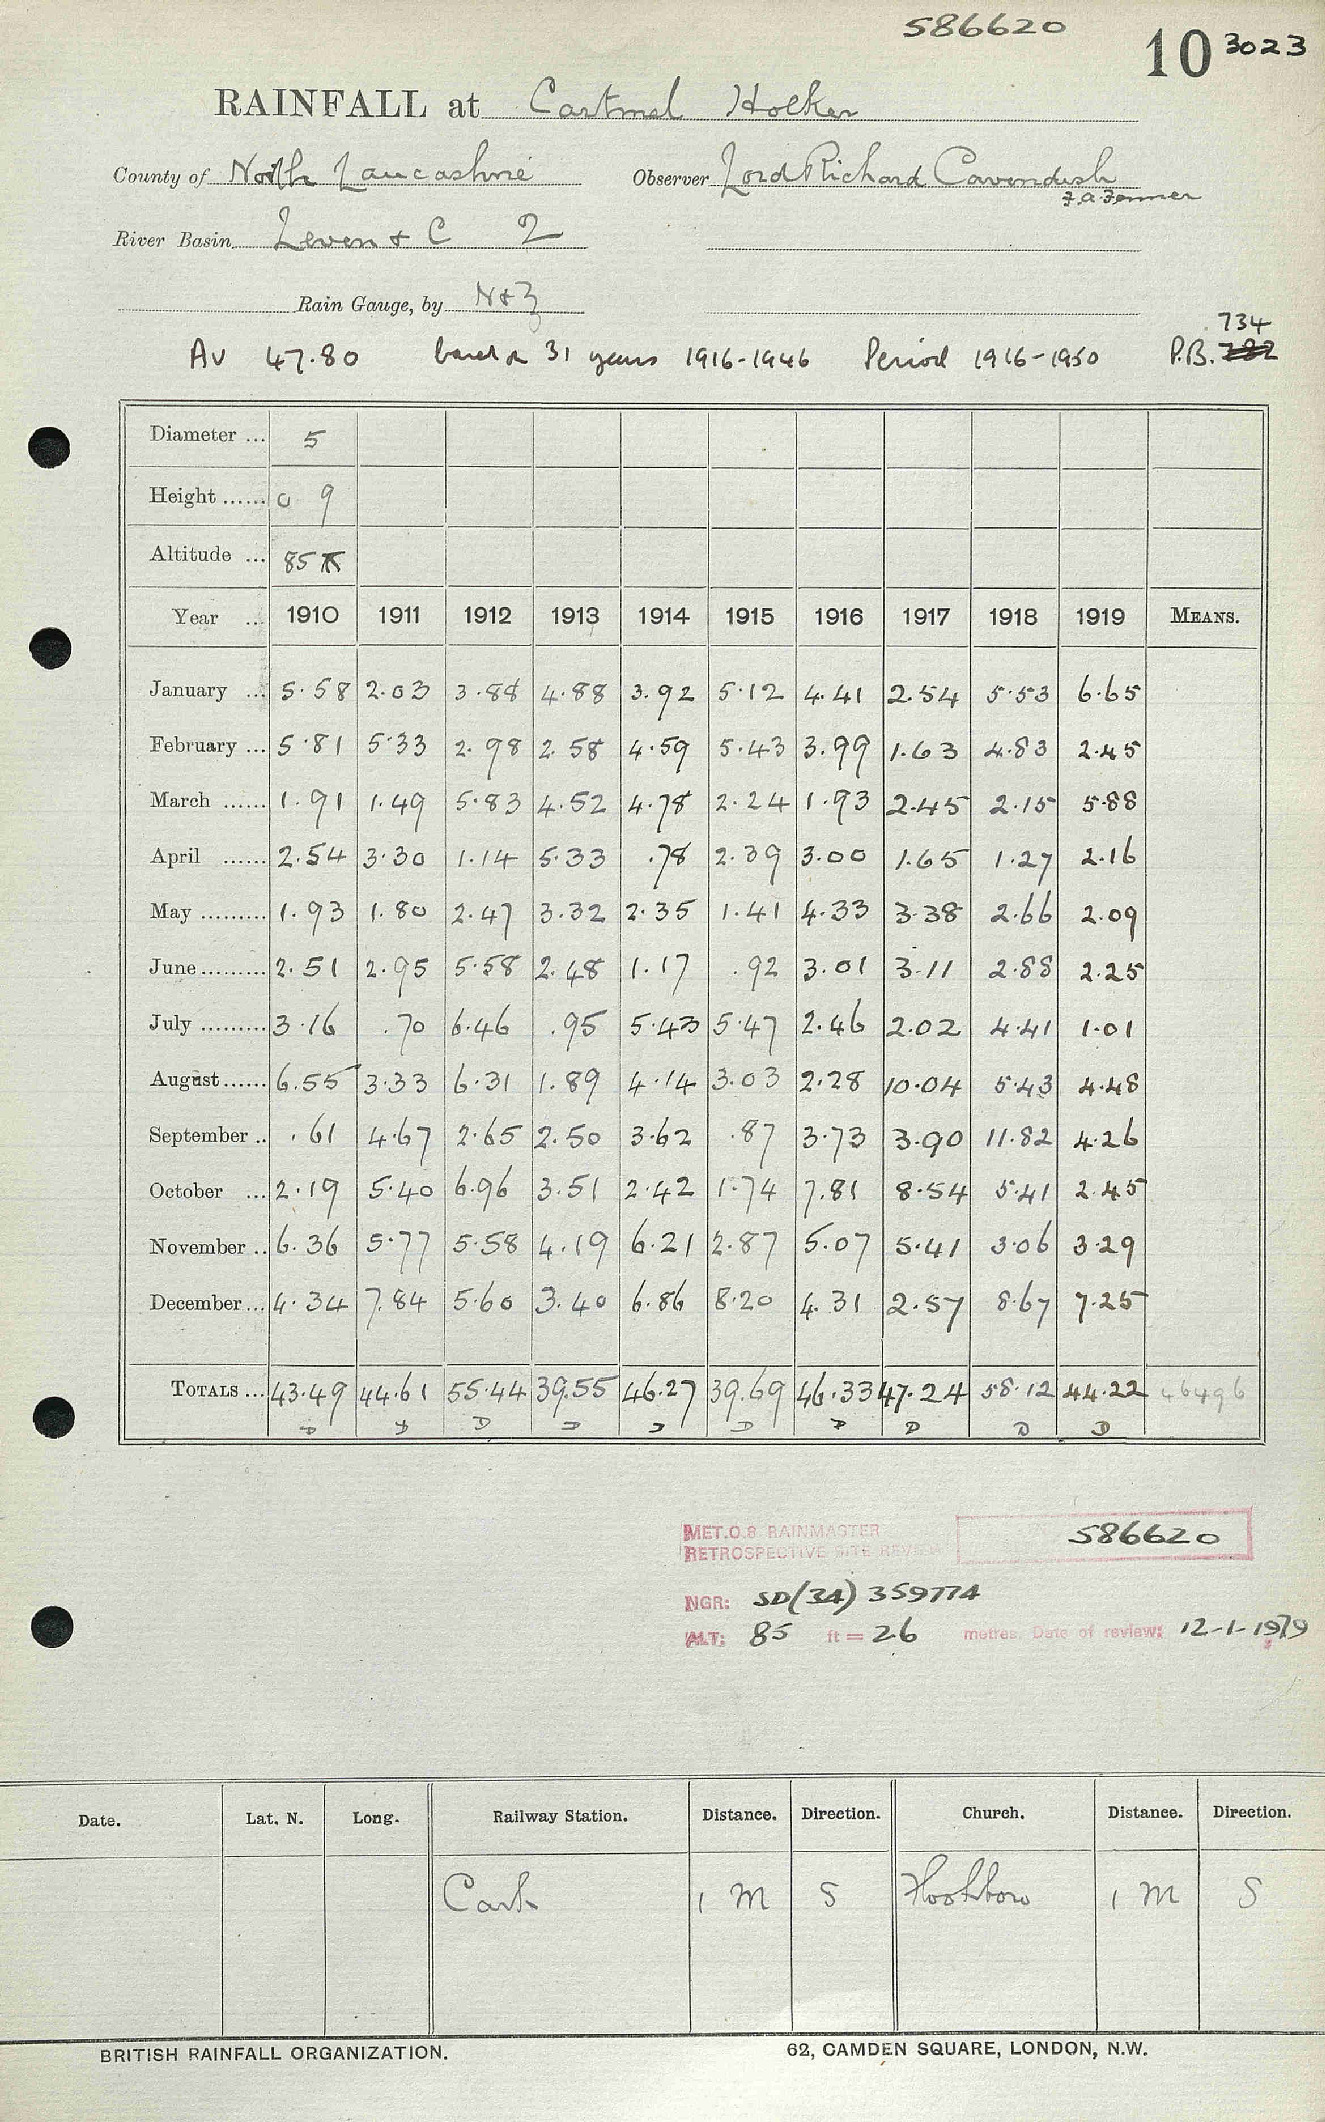 586620
10 3023
RAINFALL at Cartmel Holker
County of North Lancashire Observer Lord Richard Cavendish
F.A. Fenner
River Basin Leven & C 2
Rain Gauge, by N & Z
734
Av 47.80 based on 31 years 1916-1946 Period 1916-1950 P.B. 782
Diameter ... 5
Height ...... 0 9
Altitude ... 85
Year ... 1910 1911 1912 1913 1914 1915 1916 1917 1918 1919 MEANS.
January ... 5.58 2.03 3.88 4.88 3.92 5.12 4.41 2.54 5.53 6.65
February ... 5.81 5.33 2.98 2.58 4.59 5.43 3.99 1.63 4.83 2.45
March ...... 1.91 1.49 5.83 4.52 4.78 2.24 1.93 2.45 2.15 5.88
April ...... 2.54 3.30 1.14 5.33 .78 2.39 3.00 1.65 1.27 2.16
May ......... 1.93 1.80 2.47 3.32 2.35 1.41 4.33 3.38 2.66 2.09
June ......... 2.51 2.95 5.58 2.48 1.17 .92 3.01 3.11 2.88 2.25
July ......... 3.16 .70 6.46 .95 5.43 5.47 2.46 2.02 4.41 1.01
August ...... 6.55 3.33 6.31 1.89 4.14 3.03 2.28 10.04 5.43 4.48
September .. .61 4.67 2.65 2.50 3.62 .87 3.73 3.90 11.82 4.26
October ... 2.19 5.40 6.96 3.51 2.42 1.74 7.81 8.54 5.41 2.45
November .. 6.36 5.77 5.58 4.19 6.21 2.87 5.07 5.41 3.06 3.29
December ... 4.34 7.84 5.60 3.40 6.86 8.20 4.31 2.57 8.67 7.25
TOTALS ... 43.49 44.61 55.44 39.55 46.27 39.69 46.33 47.24 58.12 44.22 46496
D D D D D D D D D D
MET.O.8 RAINMASTER
RETROSPECTIVE SITE REVIEW 586620
NGR: SD(34) 359774
ALT: 85 ft = 26 metres. Date of review: 12-1-1979
Date. Lat. N. Long. Railway Station. Distance. Direction. Church. Distance. Direction.
Cark 1 M S Flookboro 1 M S
BRITISH RAINFALL ORGANIZATION. 62, CAMDEN SQUARE, LONDON, N.W.